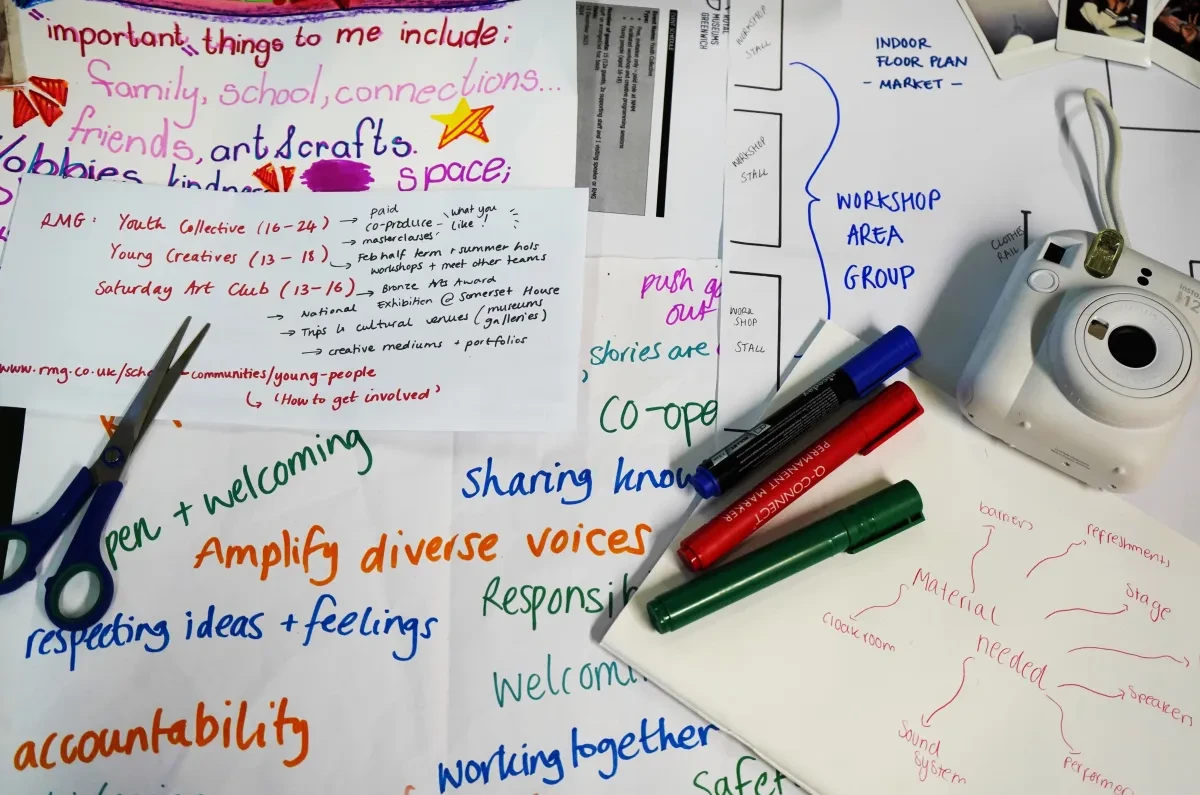 "important" things to me include:
family, school, connections...
friends, art & crafts.
space;
RMG: Youth Collective (16-24) → paid
co-produce - what you like!
→ masterclasses
Young Creatives (13-18) → Feb half term + summer hols
workshops + meet other teams
Saturday Art Club (13-16) → Bronze Arts Award
→ National Exhibition @ Somerset House
→ Trips to cultural venues (museums
galleries)
→ creative mediums + portfolios
communities/young-people
↳ 'How to get involved'
ROYAL
MUSEUMS
GREENWICH
WORKSHOP
STALL
WORKSHOP
STALL
WORK
SHOP
STALL
INDOOR
FLOOR PLAN
- MARKET -
WORKSHOP
AREA
GROUP
CLOTHES
RAIL
push
out
stories are
co-ope
pen + welcoming
sharing know
Amplify diverse voices
Responsib
respecting ideas + feelings
welcomi
accountability
working together
safet
Q-CONNECT
PERMANENT MARKER
barriers
refreshments
Material
needed
stage
cloakroom
speakers
sound
system
performer